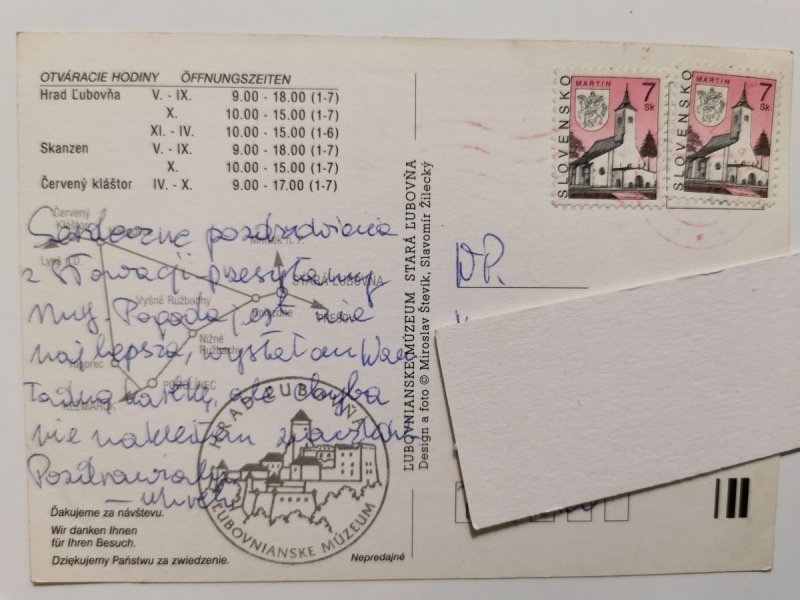 OTVÁRACIE HODINY ÖFFNUNGSZEITEN
Hrad Ľubovňa V. - IX. 9.00 - 18.00 (1-7)
X. 10.00 - 15.00 (1-7)
XI. - IV. 10.00 - 15.00 (1-6)
Skanzen V. - IX. 9.00 - 18.00 (1-7)
X. 10.00 - 15.00 (1-7)
Červený kláštor IV. - X. 9.00 - 17.00 (1-7)
Červený
Serdeczne pozdrowienia
z Słowacji przesyłamy
my. Pogoda jest nie
najlepsza, wysłałam Wam
ładną kartkę, ale chyba
nie nakleiłam
STARÁ ĽUBOVŇA
Vyšné Ružbachy
PREŠOV
Nižné
Ružbachy
PODOLÍNEC
KEŽMAROK
HRAD ĽUBOVŇA
ĽUBOVNIANSKE MÚZEUM
Ďakujeme za návštevu.
Wir danken Ihnen
für Ihren Besuch.
Dziękujemy Państwu za zwiedzenie.
Nepredajné
ĽUBOVNIANSKE MÚZEUM STARÁ ĽUBOVŇA
Design a foto © Miroslav Števík, Slavomír Žilecký
SLOVENSKO
MARTIN
7
Sk
SLOVENSKO
MARTIN
7
Sk